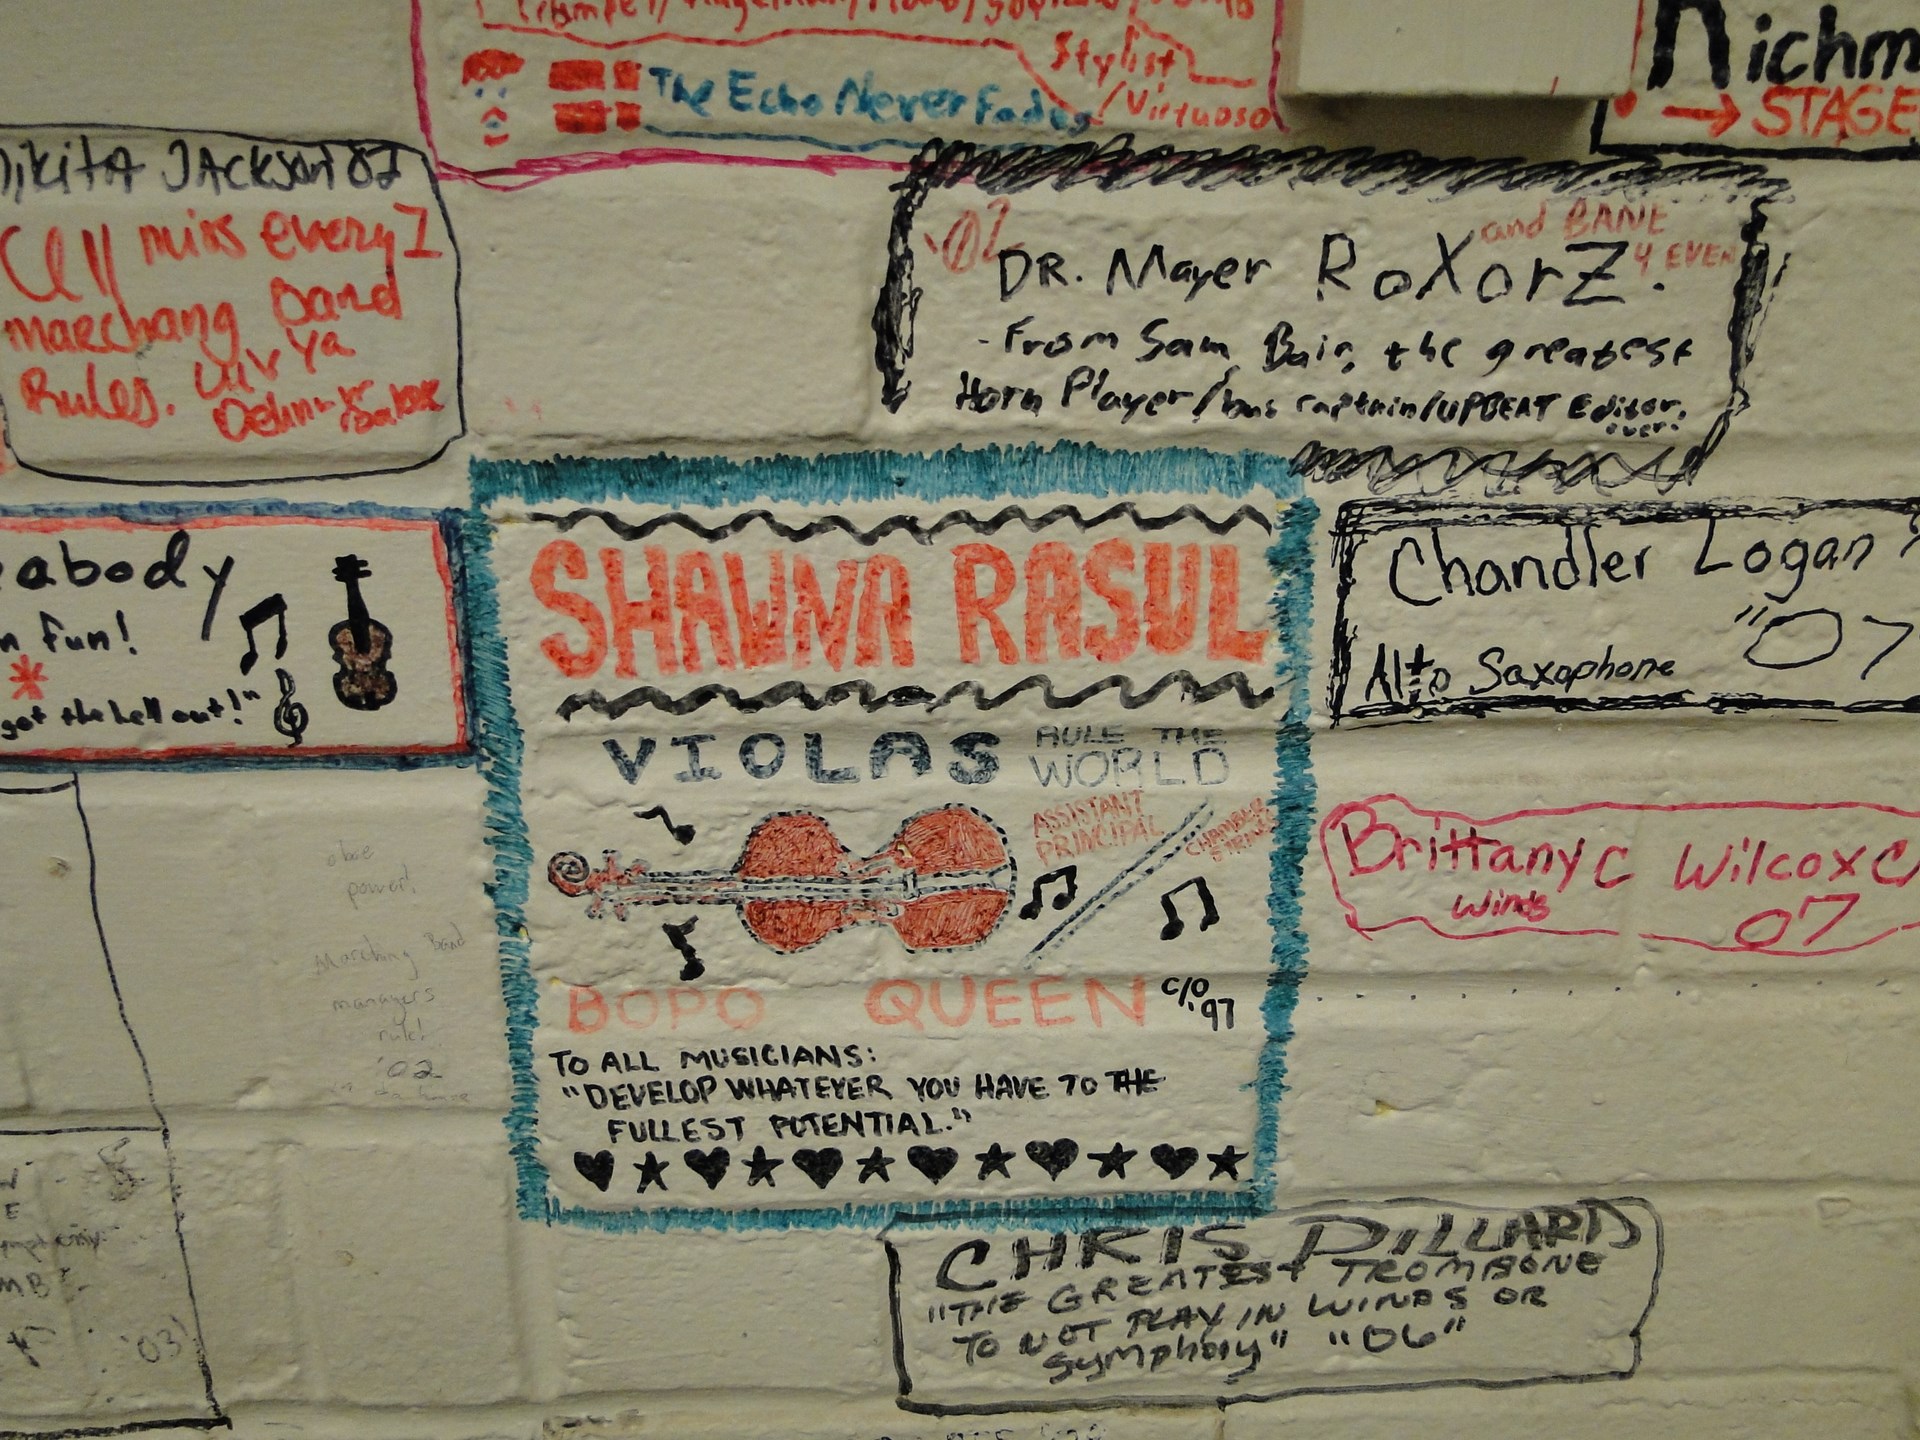 Stylist
/Virtuoso
The Echo Never Fades
Richm
→ STAGE
Nikita Jackson 02
miss every1
marchang Band
Rules. Luv Ya
'02
DR. Mayer RoXorZ.
and BANE
4 EVER
-From Sam Bair, the greatest
Horn Player/bus captain/UPBEAT Editor,
ever.
eabody
n Fun!
got the hell out!"
SHAWNA RASUL
VIOLAS RULE THE
WORLD
ASSISTANT
PRINCIPAL
CHAMBER
STRINGS
BOPO QUEEN C/O
'97
TO ALL MUSICIANS:
"DEVELOP WHATEVER YOU HAVE TO THE
FULLEST POTENTIAL."
Chandler Logan
Alto Saxophone "07
Brittany C Wilcox
Winds
07
oboe
power!
Marching Band
managers
rule!
'02
'03
CHRIS DILLARD
"THE GREATEST TROMBONE
TO NOT PLAY IN WINDS OR
Symphony" "06"